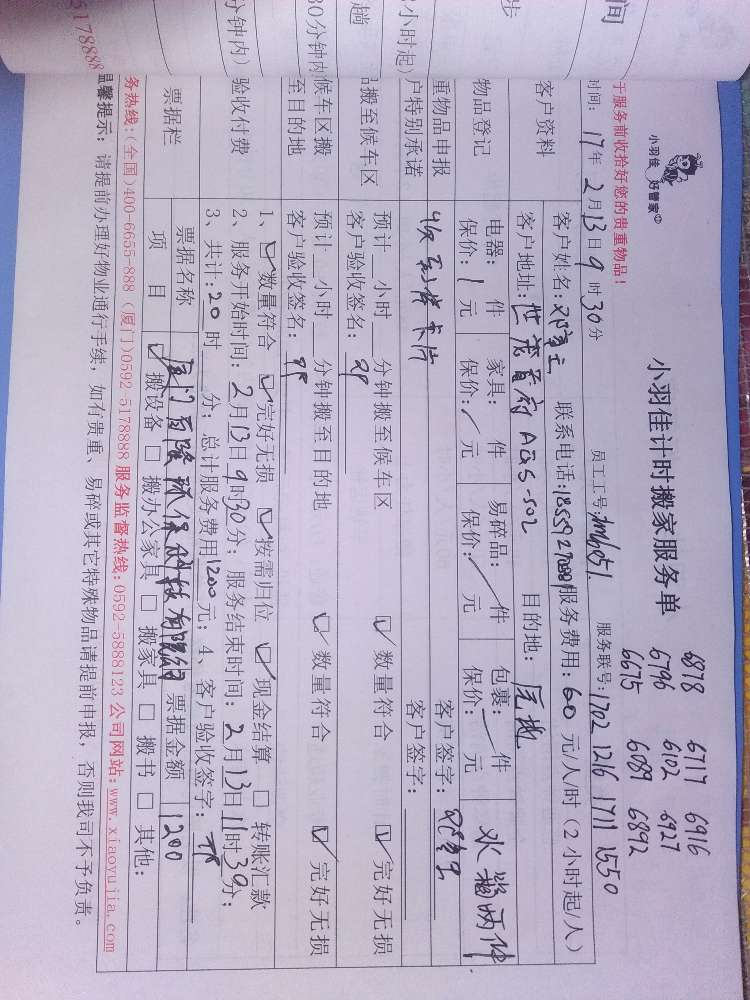 于服务前收拾好您的贵重物品!
小羽佳 好管家
小羽佳计时搬家服务单
6878 6717 6916
6796 6102 6927
6675 6089 6892
时间: 17年 2月13日 9时30分 员工工号: 服务联号: 1702 1216 1711 1550
客户资料
客户姓名: 联系电话: 服务费用: 60 元/人/时 (2小时起/人)
客户地址: 世茂首府 A区5-502 目的地:
物品登记
电器: 件 家具: 件 易碎品: 件 包裹: 件
保价: 1 元 保价: 元 保价: 元 保价: 元
重物品申报 客户签字:
户特别承诺 客户签字:
搬至候车区
预计 小时 分钟搬至候车区 数量符合 完好无损
客户验收签名:
候车区搬
至目的地
预计 小时 分钟搬至目的地 数量符合 完好无损
客户验收签名:
验收付费
1、 数量符合 完好无损 按需归位 现金结算 转账汇款
2、服务开始时间: 2月13日9时30分; 服务结束时间: 2月13日11时30分;
3、共计: 20 时 分; 总计服务费用1200元; 4、客户验收签字:
票据栏
票据名称 厦门百隆环保科技有限公司 票据金额 1200
项目 搬设备 搬办公家具 搬家具 搬书 其他:
务热线:(全国)400-6655-888 (厦门)0592-5178888 服务监督热线:0592-5888123 公司网站:www.xiaoyujia.com
温馨提示: 请提前办理好物业通行手续, 如有贵重、易碎或其它特殊物品请提前申报, 否则我司不予负责。
间
步
小时起)
趟
30分钟内
分钟内)
5178888